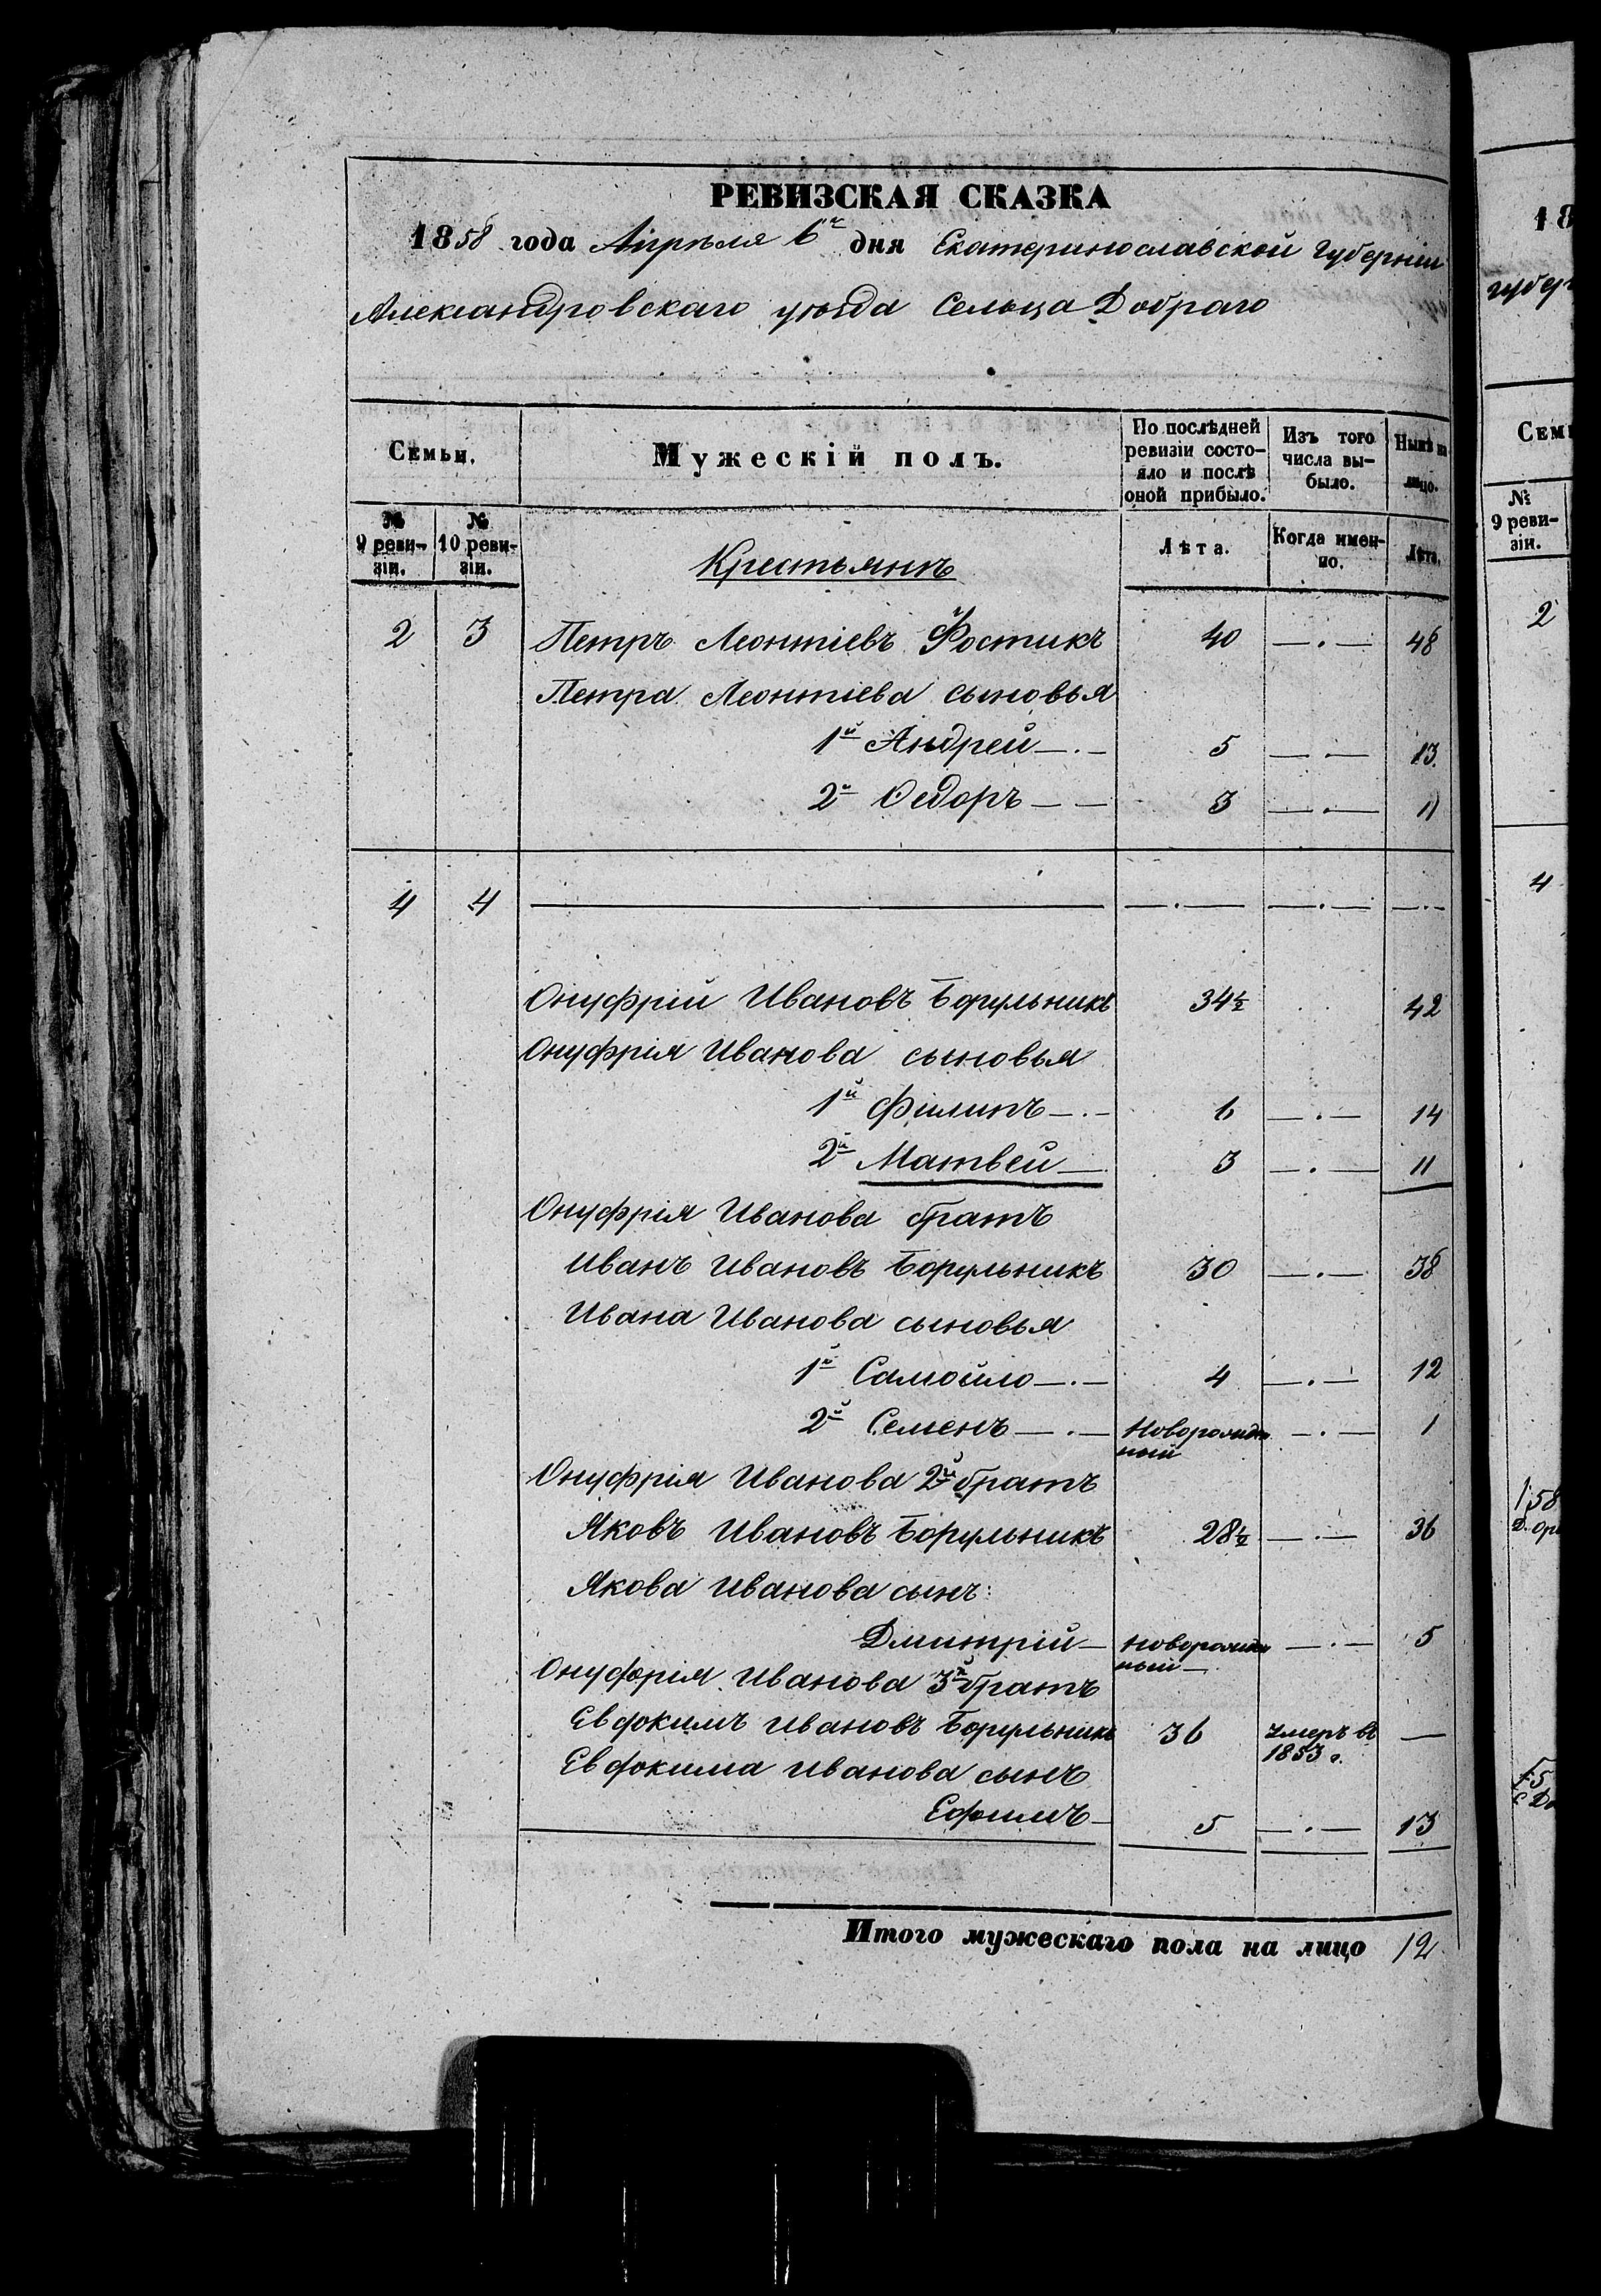 РЕВИЗСКАЯ СКАЗКА
1858 года Апреля 6го дня Екатеринославской губерніи
Александровскаго уѣзда Сельца Добраго
Семьи.
Мужескій полъ.
По послѣдней ревизіи состояло и послѣ оной прибыло.
Изъ того числа выбыло.
Нынѣ на лицо.
№ 9 ревизіи.
№ 10 ревизіи.
Крестьянъ
Лѣта.
Когда именно.
Лѣта.
2 3 Петръ Леонтіевъ Фостикъ 40 —.— 48
Петра Леонтіева сыновья
1й Андрей —.— 5 —.— 13.
2й Ѳедоръ — — 3 —.— 11
4 4 —— —.— —.— —.—
Онуфрій Ивановъ Борульникъ 34½ 42
Онуфрія Иванова сыновья
1й Филипъ —.— 6 —.— 14
2й Матвей — 3 —.— 11
Онуфрія Иванова братъ
Иванъ Ивановъ Борульникъ 30 —.— 38
Ивана Иванова сыновья
1й Самойло —.— 4 —.— 12
2й Семенъ —.— Новорожденный —.— 1
Онуфрія Иванова 2й братъ
Яковъ Ивановъ Борульникъ 28½ —.— 36
Якова Иванова сынъ:
Дмитрій — Новорожденный — —.— 5
Онуфорія Иванова 3й братъ
Евфокимъ Ивановъ Борульникъ 36 умеръ въ 1853 г. —
Евфокима Иванова сынъ
Ефимъ — 5 —.— 13
Итого мужескаго пола на лицо 12
18
губер
Семь
№ 9 ревизіи.
2
4